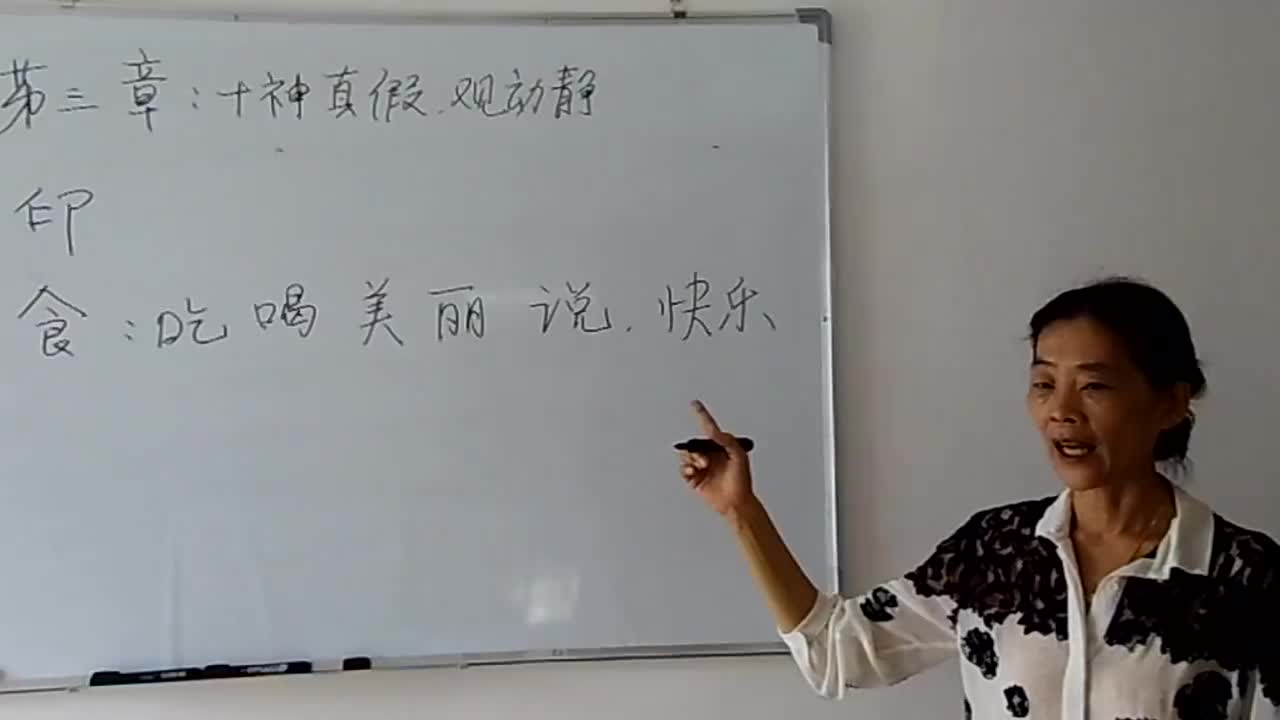 第三章:十神真假.观动静
印
食:吃喝美丽说.快乐